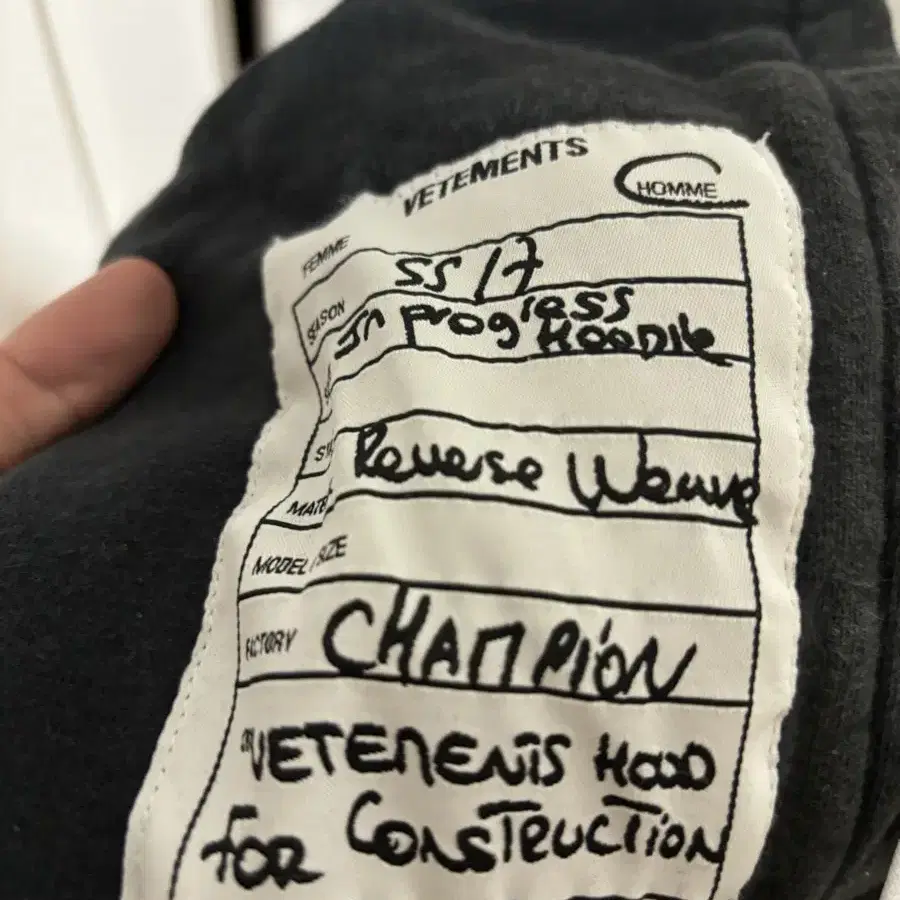 VETEMENTS
FEMME HOMME
SEASON SS 17
In progress
Hoodie
Reverse Weave
MODEL / SIZE
FACTORY CHAMPION
VETEMENTS HOOD
FOR CONSTRUCTION